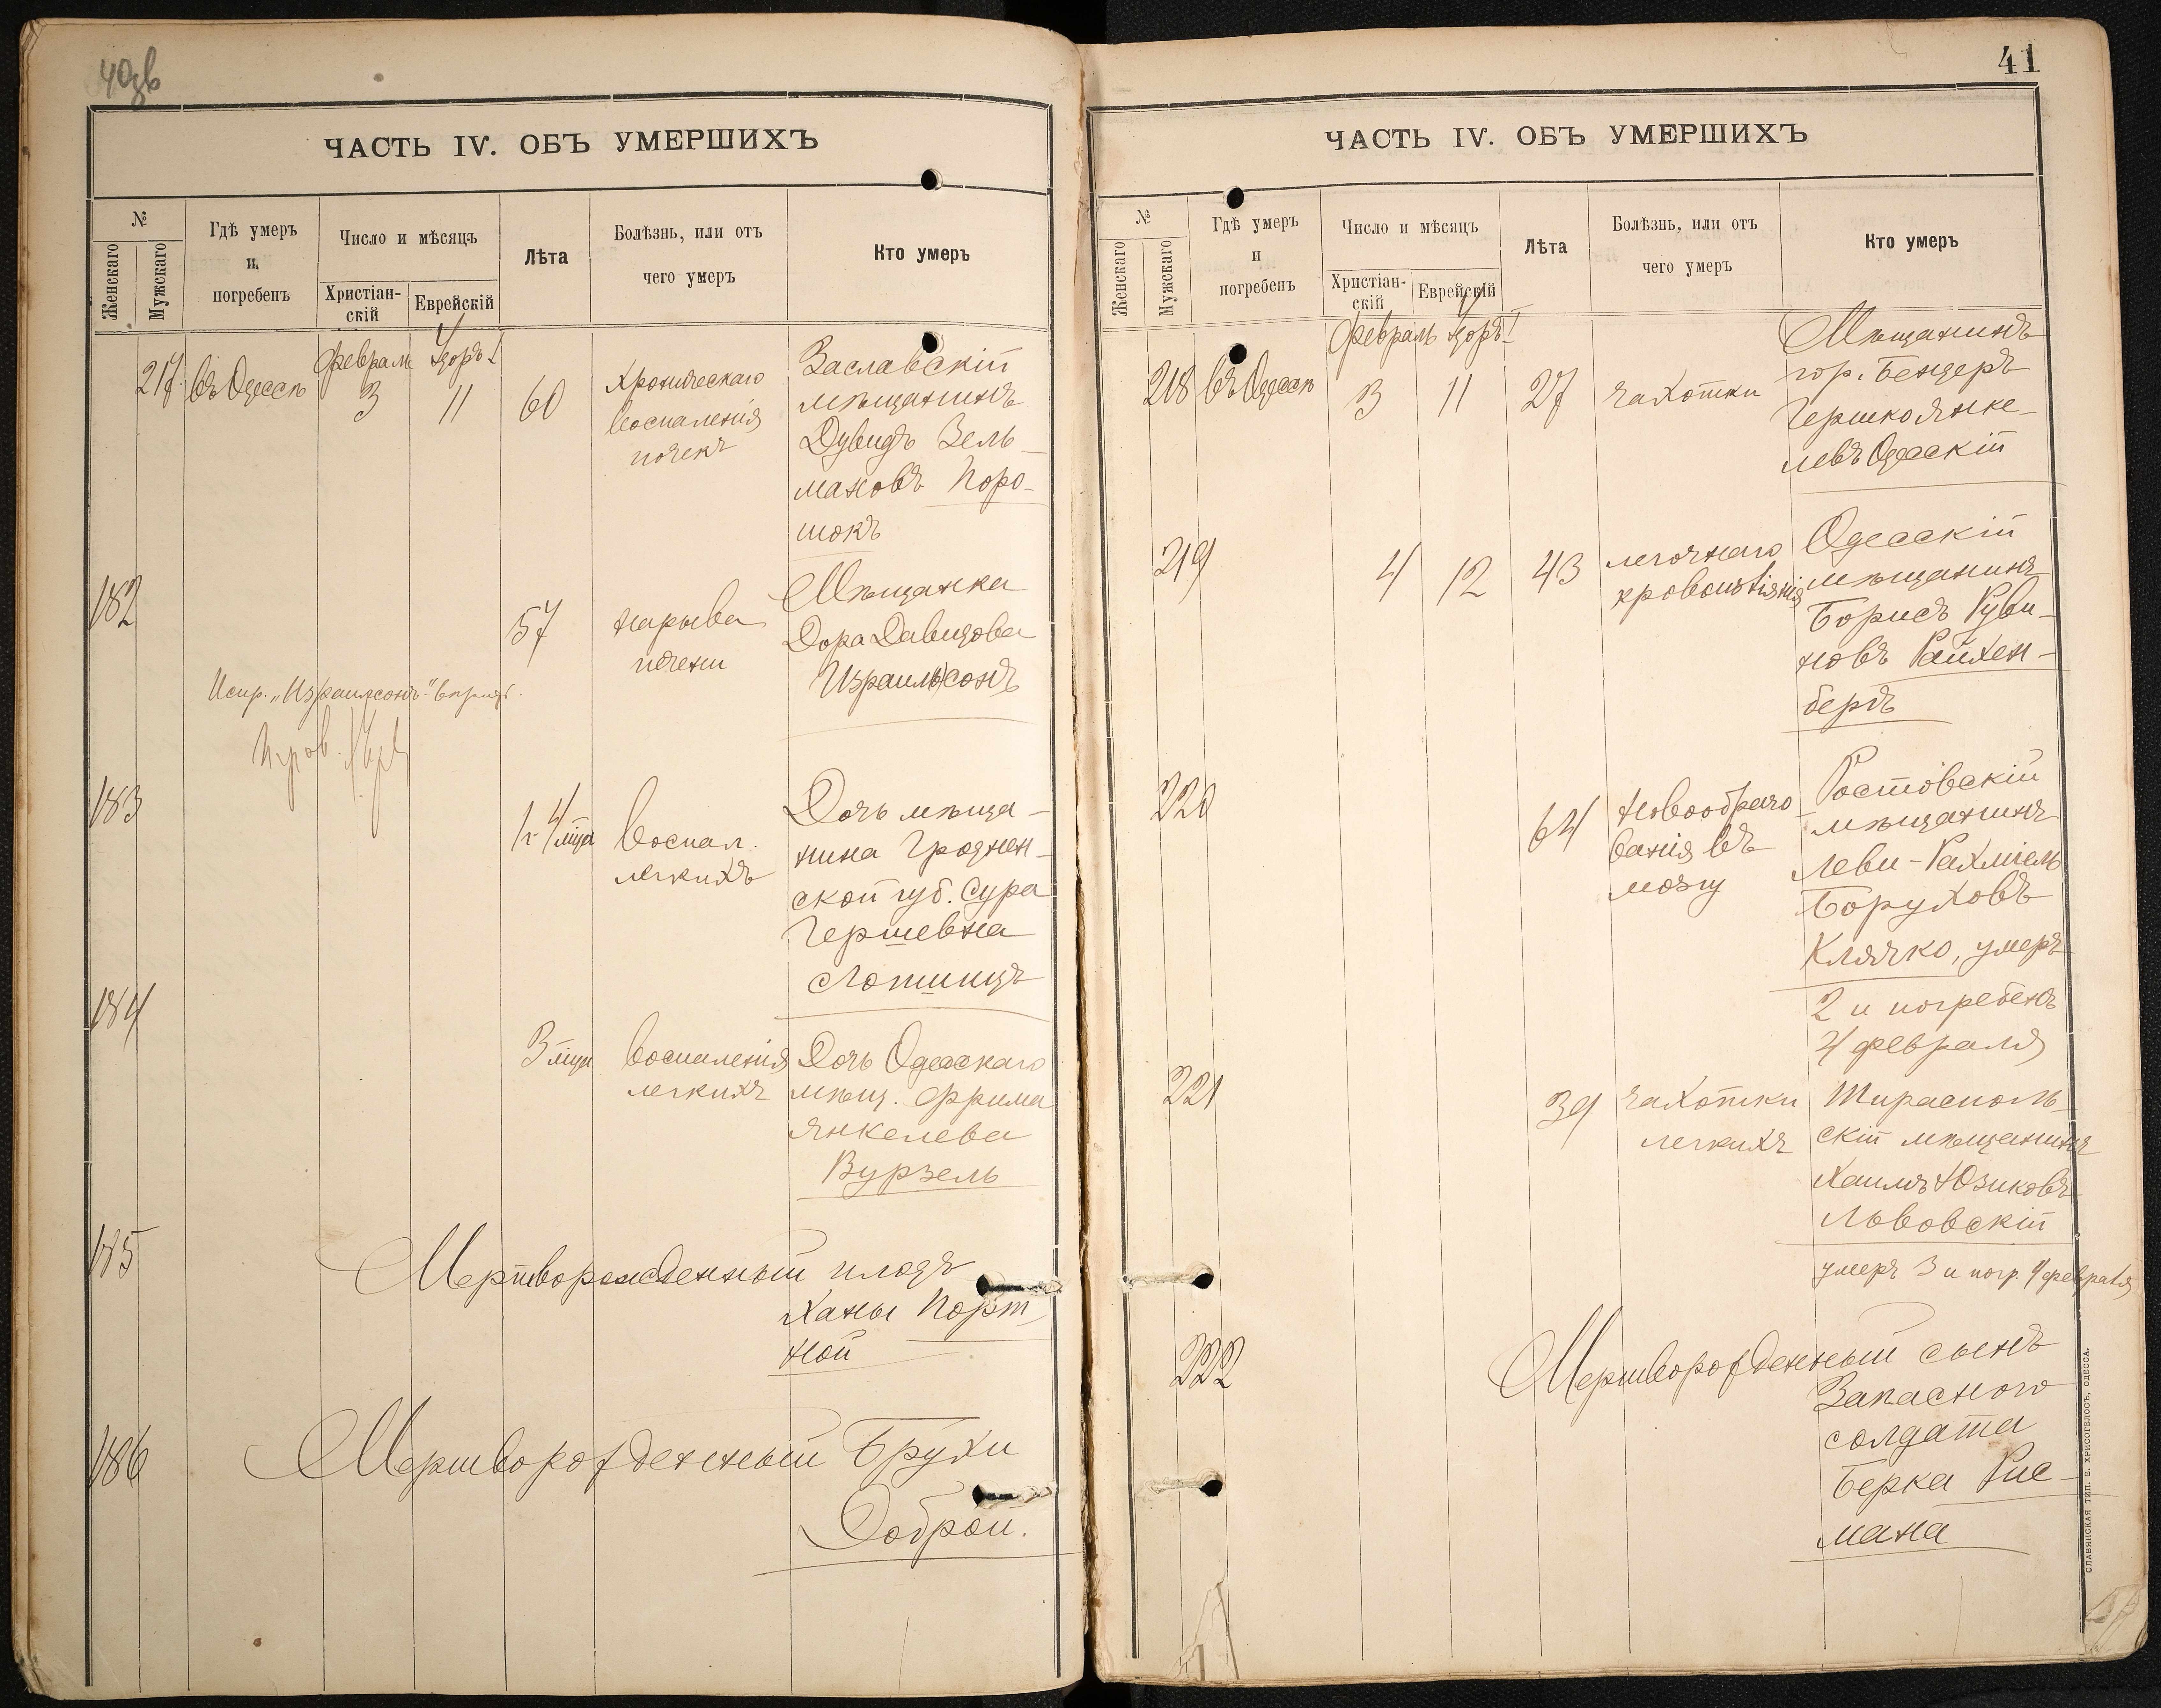 40об
ЧАСТЬ IV. ОБЪ УМЕРШИХЪ
№
Женскаго
Мужскаго
Гдѣ умеръ
и
погребенъ
Число и мѣсяцъ
Христіан-
скій
Еврейскій
Лѣта
Болѣзнь, или отъ
чего умеръ
Кто умеръ
Февраль
217
въ Одессѣ
3
11
60
Хроническаго
воспаленія
почекъ
Заславскій
мѣщанинъ
Дувидъ Зель-
мановъ Поро-
шокъ
182
57
Нарыва
печени
Мѣщанка
Дора Давидова
Израильсонъ
Испр. „Израилсонъ"
183
воспал.
легкихъ
Дочь мѣща-
нина Гроднен-
ской губ. Сура
Гершевна
184
3 мца
воспаленія
легкихъ
Дочь Одесскаго
мѣщ. Фрима
Янкелева
Вурзель
185
Мертворожденный плодъ
Ханы Порт-
ной
186
Мертворожденный Брухи
Доброй.
41
ЧАСТЬ IV. ОБЪ УМЕРШИХЪ
№
Женскаго
Мужскаго
Гдѣ умеръ
и
погребенъ
Число и мѣсяцъ
Христіан-
скій
Еврейскій
Лѣта
Болѣзнь, или отъ
чего умеръ
Кто умеръ
Февраль
218
въ Одессѣ
3
11
27
чахотки
Мѣщанинъ
гор. Бендеръ
Гершко Янке-
левъ Одесскій
219
4
12
43
легочнаго
кровоизліянія
Одесскій
мѣщанинъ
Борисъ Руви-
новъ Райхен-
бергъ
220
64
Новообразо-
ванія въ
мозгу
Ростовскій
мѣщанинъ
Леви-Рахміель
Боруховъ
Клячко, умеръ
2 и погребенъ
4 февраля
221
39
чахотки
легкихъ
Тирасполь-
скій мѣщанинъ
Хаимъ Юзиковъ
Львовскій
умеръ 3 и погр. 4 февраля
222
Мертворожденный сынъ
Запасного
солдата
Берка Рис-
мана
СЛАВЯНСКАЯ ТИП. Е. ХРИСОГЕЛОСЪ, ОДЕССА.